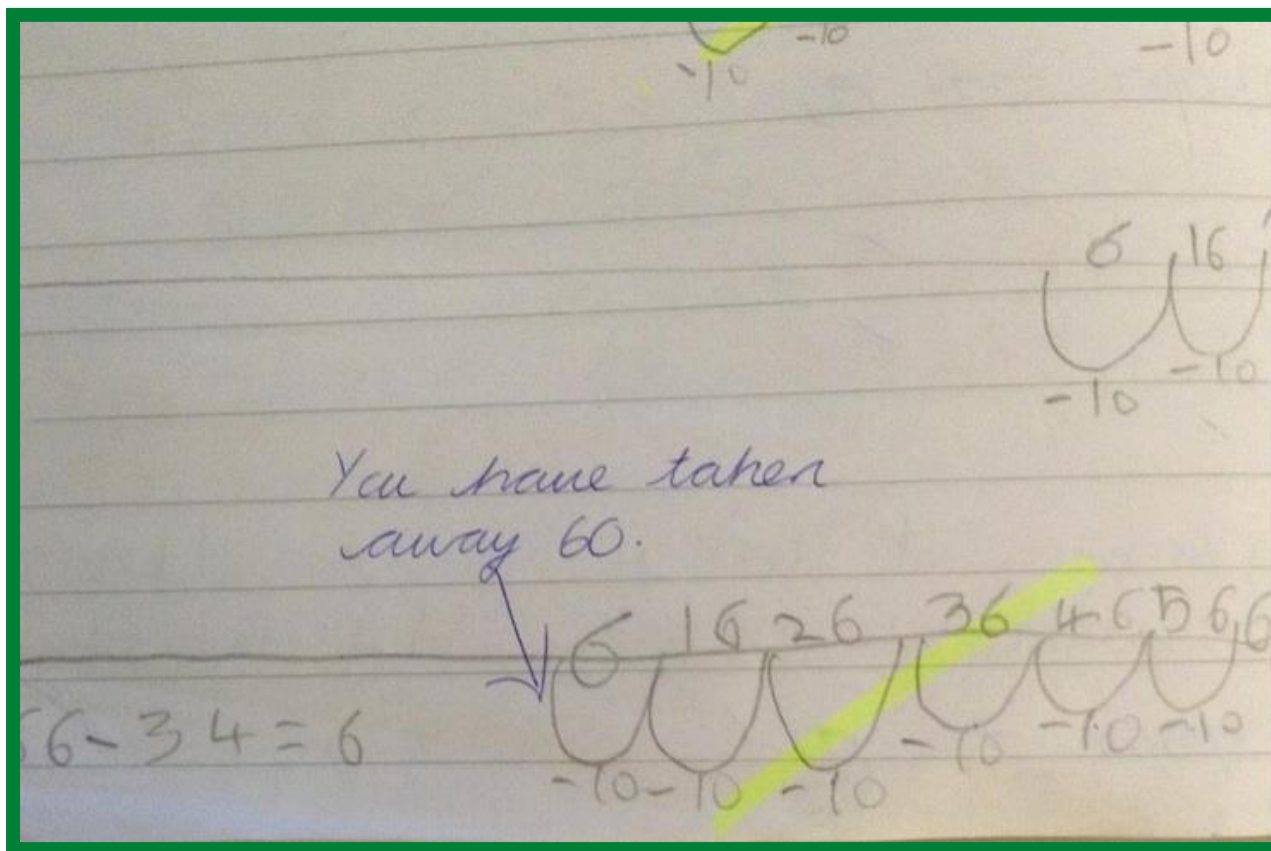 -10
-10 -10
6 16
-10 -10
You have taken
away 60.
6 16 26 36 46 56 6
6-34=6
-10 -10 -10 -10 -10 -10